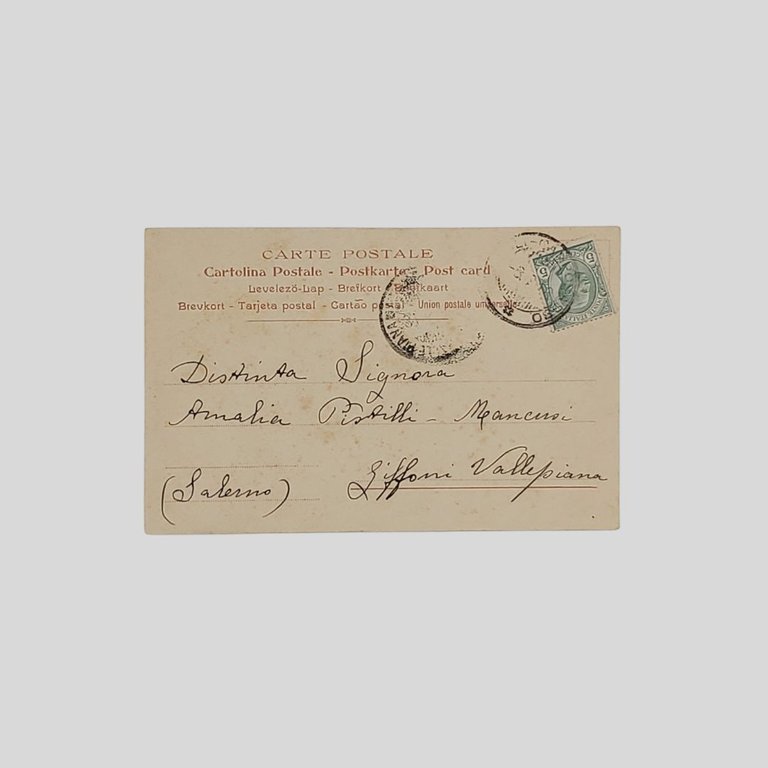 CARTE POSTALE
Cartolina Postale - Postkarte - Post card
Levelező-Lap - Brefkort - Briefkaart
Brevkort - Tarjeta postal - Cartão postal - Union postale universelle
5 5
Distinta Signora
Amalia Pistilli - Mancusi
Giffoni Vallepiana
(Salerno)